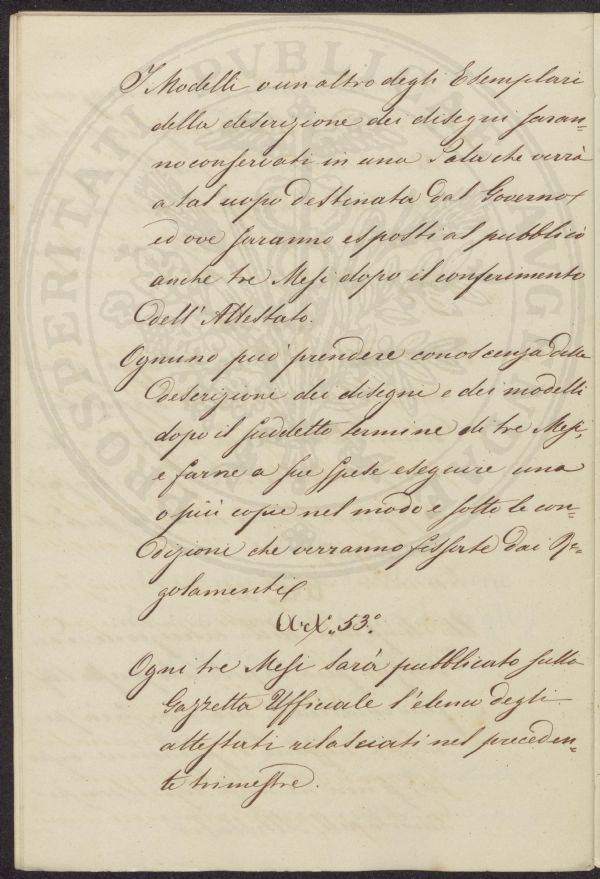 I Modelli o un altro degli Esemplari
della descrizione dei disegni saran=
no conservati in una Sala che verrà
a tal uopo destinata dal Governo
ed ove saranno esposti al pubblico
anche tre Mesi dopo il conferimento
dell'Attestato.
Ognuno può prendere conoscenza della
descrizione dei disegni e dei modelli
dopo il suddetto termine di tre Mesi,
e farne a sue spese eseguire una
o più copie nel modo e sotto le con=
dizioni che verranno fissate dai Re=
golamenti
Art. 53.°
Ogni tre Mesi sarà pubblicato sulla
Gazzetta Ufficiale l'elenco degli
attestati rilasciati nel preceden=
te trimestre.
PROSPERITATI PUBLICAE AUGENDAE